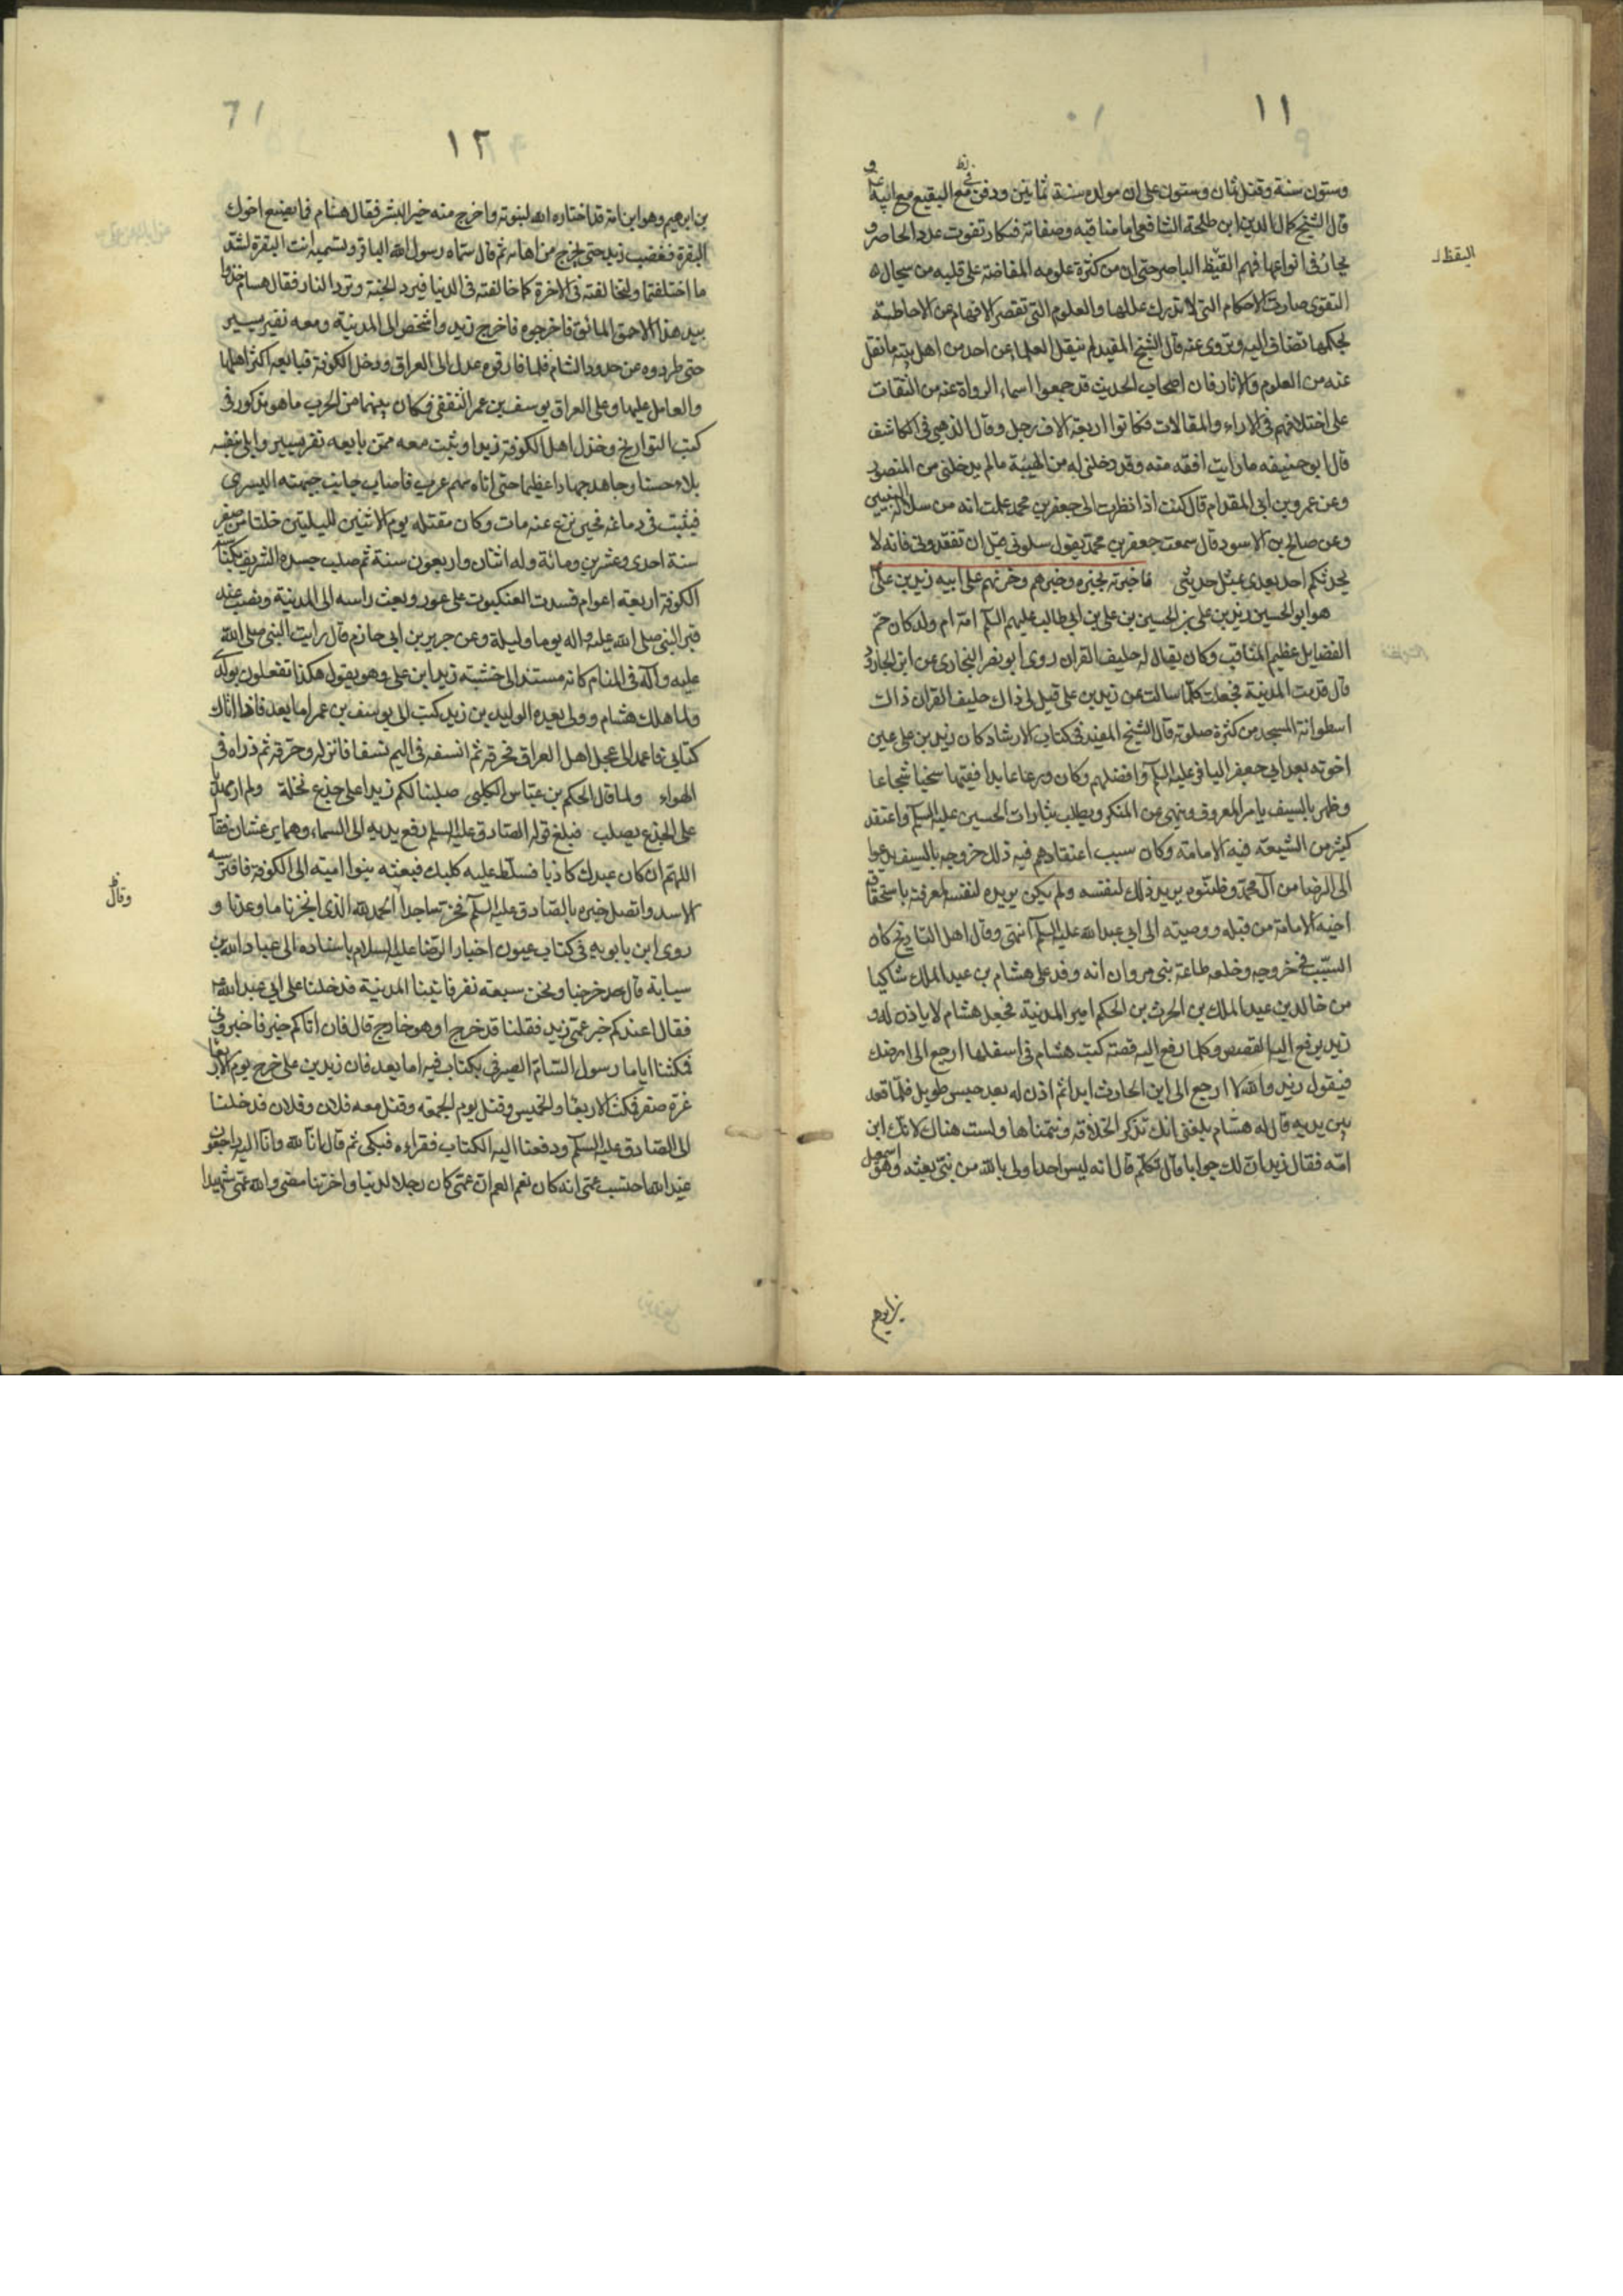 ١١
وستون سنة وقتل ثمان وستون على ان مولده سنة ثمانين ودفن في البقيع مع ابيه
قال الشيخ كمال الدين ابن طلحة الشافعي اما مناقبه وصفاته فتكاد تفوت عدد الحاصر و
يحار في انواعها فهم اليقظ الباصر حتى ان من كثرة علومه المفاضة على قلبه من سجال
اليقظ
التقوى صارت الاحكام التي لا تدرك عللها والعلوم التي تقصر الافهام عن الاحاطة
بحكمها تضاف اليه وتروى عنه قال الشيخ المفيد لم ينقل العلماء عن احد من اهل بيته ما نقل
عنه من العلوم والاثار فان اصحاب الحديث قد جمعوا اسماء الرواة عنه من الثقات
على اختلافهم في الاراء والمقالات فكانوا اربعة الاف رجل وقال الذهبي في الكاشف
قال ابو حنيفه ما رايت افقه منه وقد دخلني له من الهيبة ما لم يدخلني من المنصور
وعن عمرو بن ابي المقدام قال كنت اذا نظرت الى جعفر بن محمد علمت انه من سلالة النبيين
وعن صالح بن الاسود قال سمعت جعفر بن محمد يقول سلوني قبل ان تفقدوني فانه لا
يحدثكم احد بعدي بمثل حديثي فاخبرته بخبره وخبرهم وحزنهم على ابيه زيد بن علي
هو ابو الحسين زيد بن علي بن الحسين بن علي بن ابي طالب عليهم السلم امه ام ولد كان جم
الفضايل عظيم المناقب وكان يقال له حليف القران روى ابو نصر البخاري عن ابن الجارود
قال قدمت المدينة فجعلت كلما سالت عن زيد بن علي قيل لي ذاك حليف القران ذاك
اسطوانة المسجد من كثرة صلوته قال الشيخ المفيد في كتاب الارشاد كان زيد بن علي عين
اخوته بعد ابي جعفر الباقر عليه السلم وافضلهم وكان ورعا عابدا فقيها سخيا شجاعا
وظهر بالسيف يامر بالمعروف وينهى عن المنكر ويطلب بثارات الحسين عليه السلم واعتقد
كثير من الشيعة فيه الامامة وكان سبب اعتقادهم فيه ذلك خروجه بالسيف يدعوا
الى الرضا من آل محمد وظنوه يريد بذلك لنفسه ولم يكن يريده لنفسه لمعرفته باستحقاق
اخيه الامامة من قبله ووصيته الى ابي عبد الله عليه السلم انتهى وقال اهل التاريخ كان
السبب في خروجه وخلعه طاعة بني مروان انه وفد على هشام بن عبد الملك شاكيا
من خالد بن عبد الملك بن الحرث بن الحكم امير المدينة فجعل هشام لا ياذن له و
زيد يرفع اليه القصص وكلما رفع اليه قصة كتب هشام في اسفلها ارجع الى ارضك
فيقول زيد والله لا ارجع الى ابن الحارث ابدا ثم اذن له بعد حبس طويل فلما قعد
بين يديه قال له هشام بلغني انك تذكر الخلافة وتتمناها ولست هناك لانك ابن
امة فقال زيد ان لك جوابا قال تكلم قال انه ليس احد اولى بالله من نبي بعثه وهو اسمعيل
بن ابرهيم
١٢
بن ابرهيم وهو ابن امة قد اختاره الله لنبوته واخرج منه خير البشر فقال هشام فما يصنع اخوك
البقرة فغضب زيد حتى خرج من اهابه ثم قال سماه رسول الله الباقر وتسميه انت البقرة لشد
ما اختلفتما ولتخالفنه في الاخرة كما خالفته في الدنيا فيرد الجنة وترد النار فقال هشام خذوا
بيد هذا الاحمق المائق فاخرجوه فاخرج زيد واشخص الى المدينة ومعه نفر يسير
حتى طردوه عن حدود الشام فلما فارقوه عدل الى العراق ودخل الكوفة فبايعه اكثر اهلها
والعامل عليها وعلى العراق يوسف بن عمر الثقفي فكان بينهما من الحرب ما هو مذكور في
كتب التواريخ وخذل اهل الكوفة زيدا وثبت معه ممن بايعه نفر يسير وابلى بنفسه
بلاء حسنا وجاهد جهادا عظيما حتى اتاه سهم غرب فاصاب جانب جبهته اليسرى
فثبت في دماغه فحين نزع عنه مات وكان مقتله يوم الاثنين لليلتين خلتا من صفر
سنة احدى وعشرين ومائة وله اثنان واربعون سنة ثم صلب جسده الشريف بكناسة
الكوفة اربعة اعوام فسدت العنكبوت على عورته وبعث راسه الى المدينة ونصب عند
قبر النبي صلى الله عليه واله يوما وليلة وعن جرير بن ابي حازم قال رايت النبي صلى الله
عليه وآله في المنام كانه مستند الى خشبة زيد ابن علي وهو يقول هكذا تفعلون بولدي
ولما هلك هشام وولي بعده الوليد بن زيد كتب الى يوسف بن عمر اما بعد فاذا اتاك
كتابي فاعمد الى عجل اهل العراق فحرقه ثم انسفه في اليم نسفا فانزله وحرقه ثم ذراه في
الهواء ولما قال الحكم بن عباس الكلبي صلبنا لكم زيدا على جذع نخلة ولم ار مهديا
على الجذع يصلب فبلغ قوله الصادق عليه السلم رفع يديه الى السماء وهما يرعشان فقال
اللهم ان كان عبدك كاذبا فسلط عليه كلبك فبعثه بنوا امية الى الكوفة فافترسه
وقال
الاسد واتصل خبره بالصادق عليه السلم فخر ساجدا الحمد لله الذي انجزنا ما وعدنا و
روى ابن بابويه في كتاب عيون اخبار الرضا عليه السلام باسناده الى عبد الله بن
سيابة قال خرجنا ونحن سبعة نفر فاتينا المدينة فدخلنا على ابي عبد الله
فقال اعندكم خبر عمي زيد فقلنا قد خرج او هو خارج قال فان اتاكم خبر فاخبروني
فمكثنا اياما رسول السام الصيرفي بكتاب فيه اما بعد فان زيد بن علي خرج يوم الاربعا
غرة صفر فمكث الاربعا والخميس وقتل يوم الجمعة وقتل معه فلان وفلان فدخلنا
الى الصادق عليه السلم ودفعنا اليه الكتاب فقراءه فبكى ثم قال انا لله وانا اليه راجعون
عند الله احتسب عمي انه كان نعم العم ان عمي كان رجلا لدنيا واخرتنا مضى والله عمي شهيدا